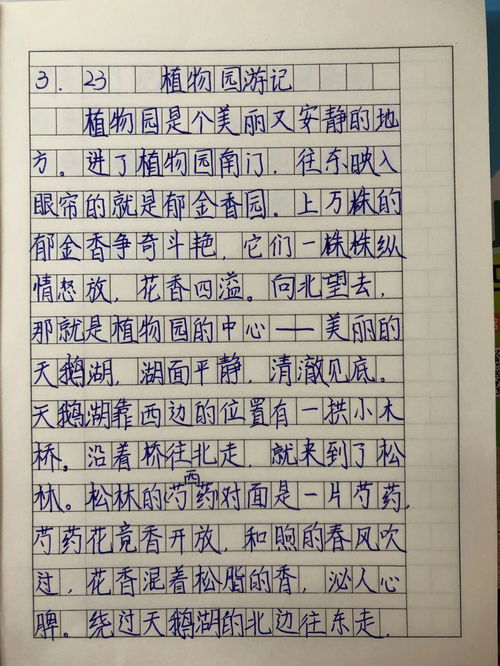 3.23 植物园游记
植物园是个美丽又安静的地
方。进了植物园南门，往东映入
眼帘的就是郁金香园。上万株的
郁金香争奇斗艳，它们一株株纵
情怒放，花香四溢。向北望去，
那就是植物园的中心——美丽的
天鹅湖，湖面平静，清澈见底。
天鹅湖靠西边的位置有一拱小木
桥。沿着桥往北走，就来到了松
林。松林的西对面是一片芍药，
芍药花竟香开放，和煦的春风吹
过，花香混着松脂的香，泌人心
脾。绕过天鹅湖的北边往东走，